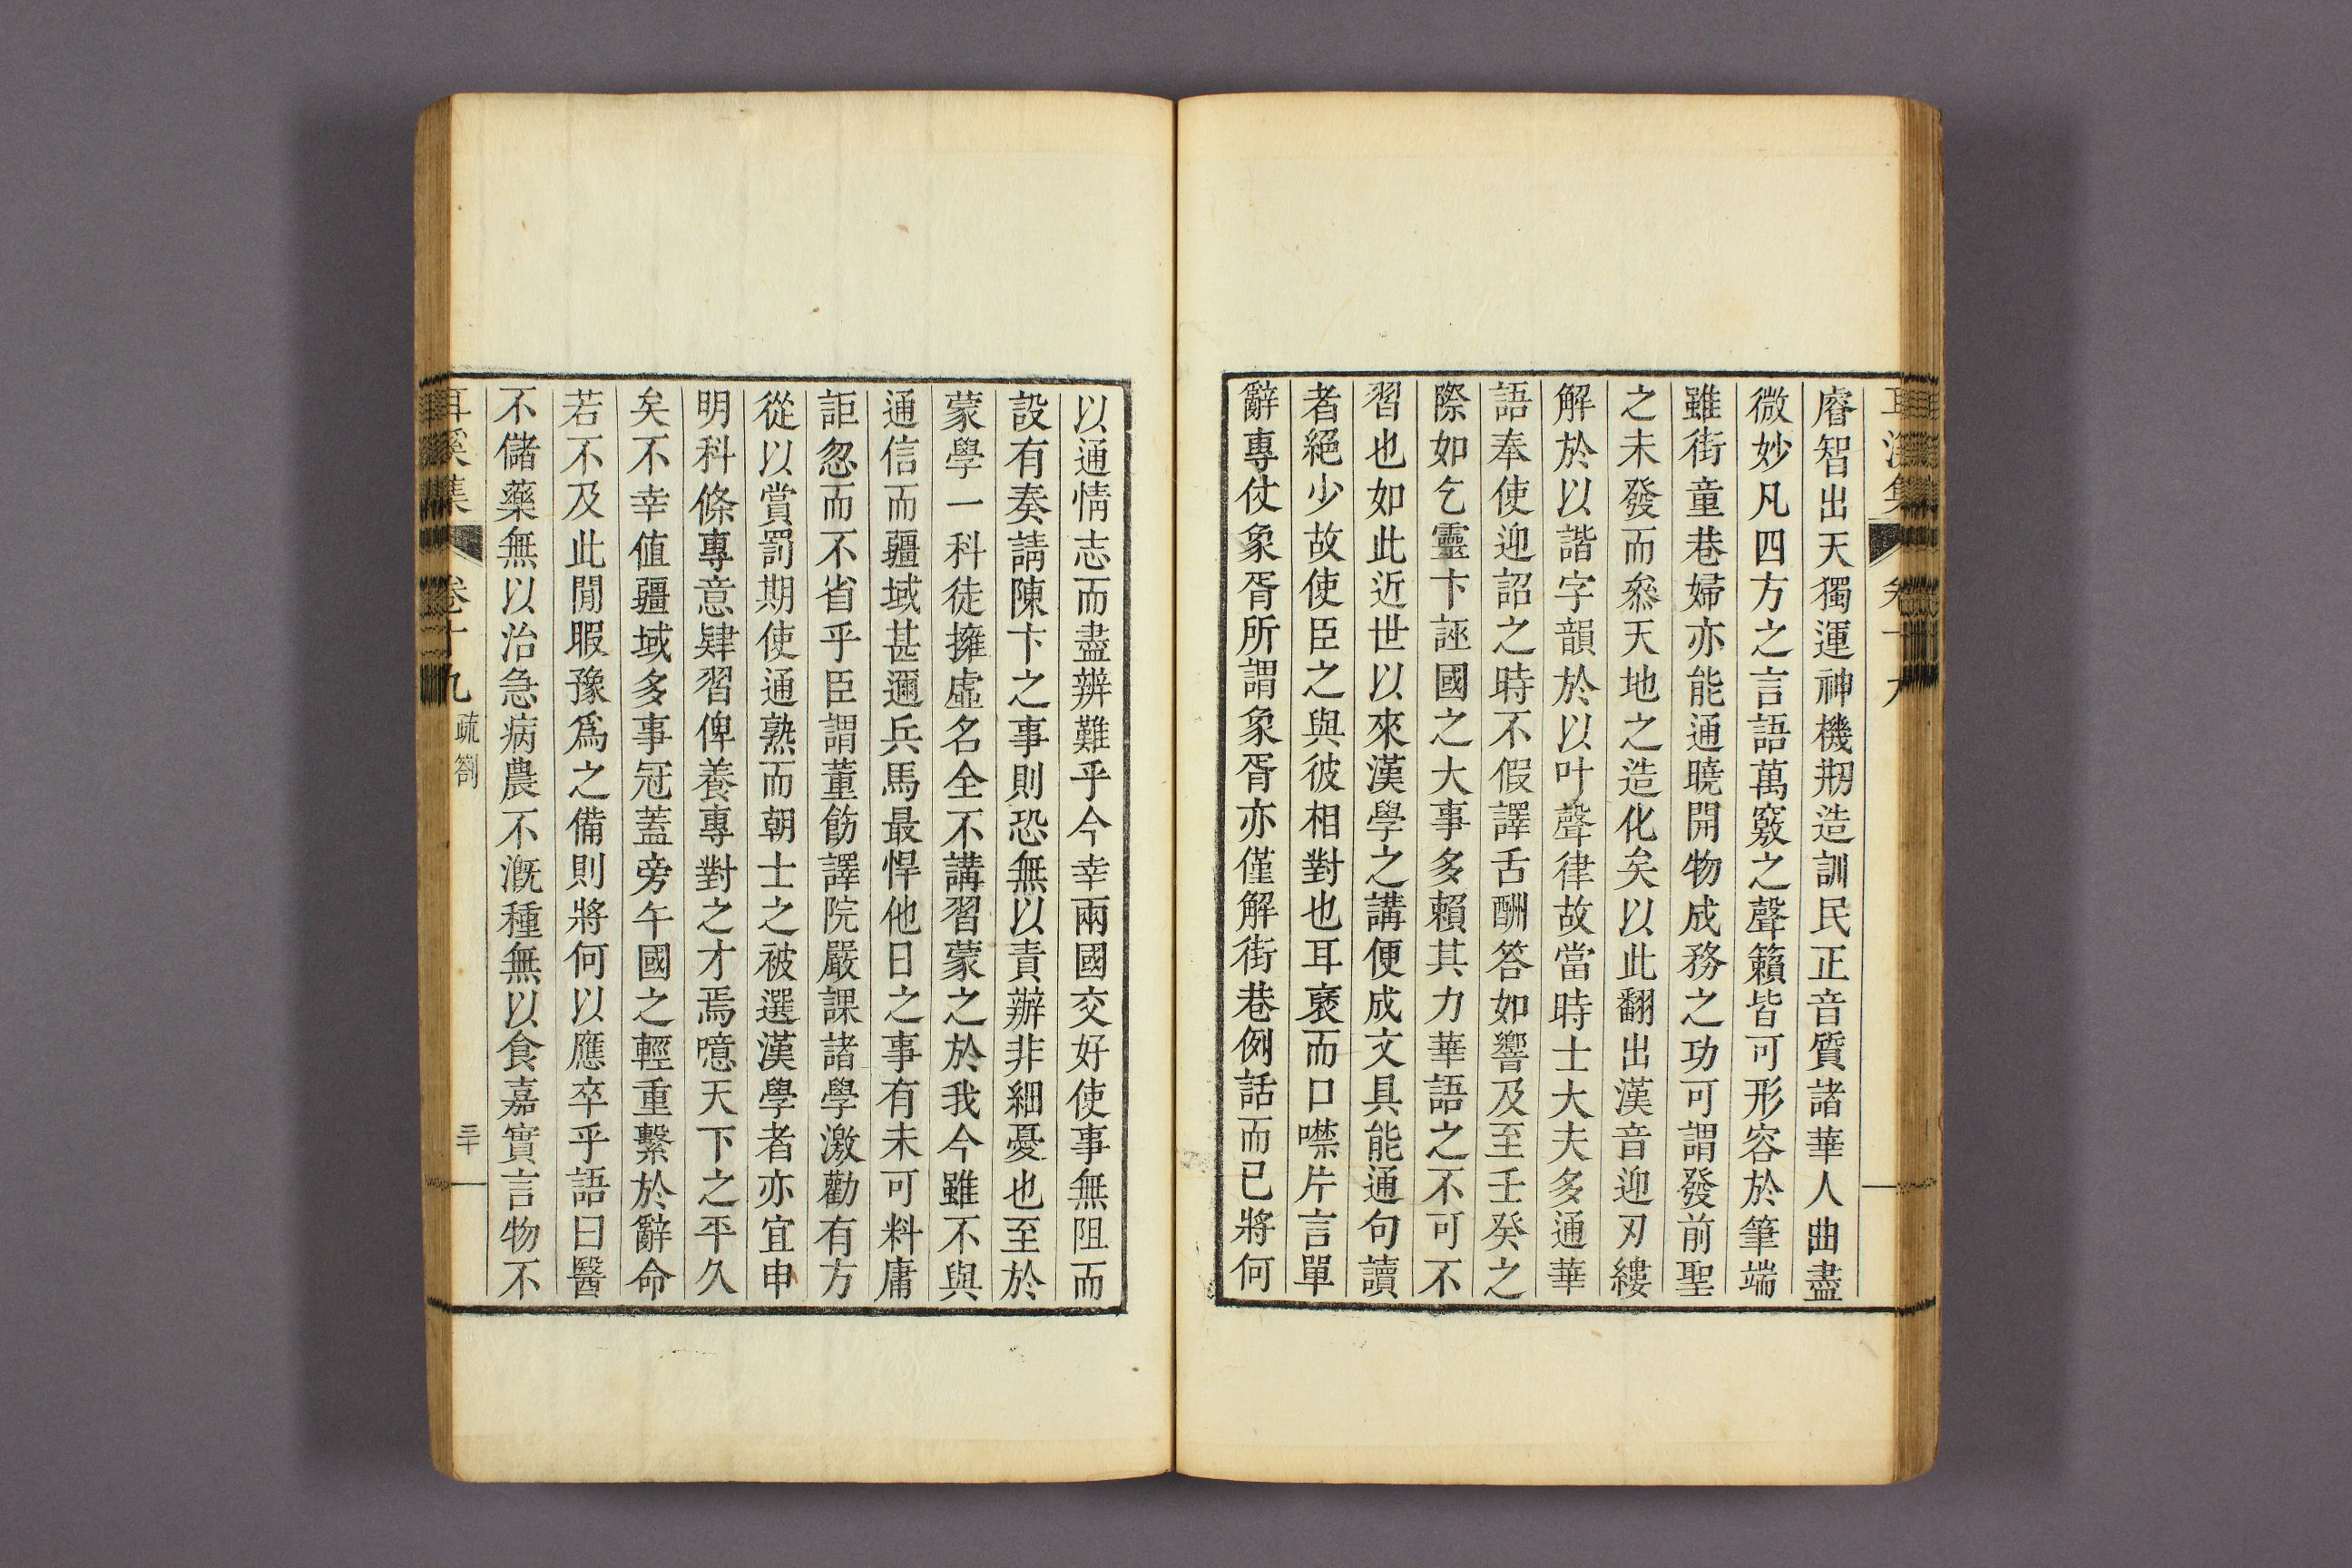 耳溪集 卷十九
睿智出天獨運神機刱造訓民正音質諸華人曲盡
微妙凡四方之言語萬竅之聲籟皆可形容於筆端
雖街童巷婦亦能通曉開物成務之功可謂發前聖
之未發而叅天地之造化矣以此翻出漢音迎刃縷
解於以諧字韻於以叶聲律故當時士大夫多通華
語奉使迎詔之時不假譯舌酬答如響及至壬癸之
際如乞靈卞誣國之大事多賴其力華語之不可不
習也如此近世以來漢學之講便成文具能通句讀
者絕少故使臣之與彼相對也耳褎而口噤片言單
辭專仗象胥所謂象胥亦僅解街巷例話而已將何
以通情志而盡辨難乎今幸兩國交好使事無阻而
設有奏請陳卞之事則恐無以責辦非細憂也至於
蒙學一科徒擁虛名全不講習蒙之於我今雖不與
通信而疆域甚邇兵馬最悍他日之事有未可料庸
詎忽而不省乎臣謂董飭譯院嚴課諸學激勸有方
從以賞罰期使通熟而朝士之被選漢學者亦宜申
明科條專意肄習俾養專對之才焉噫天下之平久
矣不幸值疆域多事冠蓋旁午國之輕重繫於辭命
若不及此閒暇豫爲之備則將何以應卒乎語曰醫
不儲藥無以治急病農不漑種無以食嘉實言物不
耳溪集 卷十九 疏劄 三十